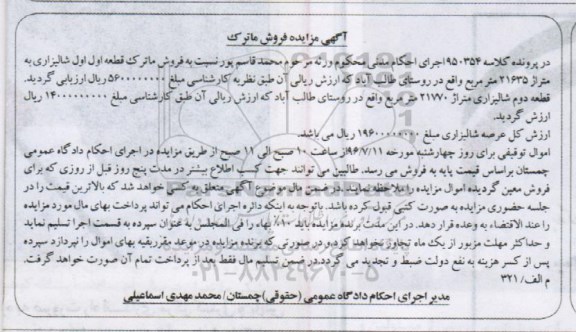 آگهی مزایده فروش ماترک
در پرونده کلاسه ۹۵۰۳۵۴ اجرای احکام مدنی محکوم ورثه مرحوم محمد قاسم پور نسبت به فروش ماترک قطعه اول اول شالیزاری به
متراژ ۲۱۶۳۵ متر مربع واقع در روستای طالب آباد که ارزش ریالی آن طبق نظریه کارشناسی مبلغ ۵۶۰۰۰۰۰۰۰ ریال ارزیابی گردید.
قطعه دوم شالیزاری متراژ ۲۱۷۷۰ متر مربع واقع در روستای طالب آباد که ارزش ریالی آن طبق کارشناسی مبلغ ۱۴۰۰۰۰۰۰۰۰ ریال
ارزش گردید.
ارزش کل عرصه شالیزاری مبلغ ۱۹۶۰۰۰۰۰۰۰ ریال می باشد.
اموال توقیفی برای روز چهارشنبه مورخه ۹۶/۷/۱۱ از ساعت ۱۰ صبح الی ۱۱ صبح از طریق مزایده در اجرای احکام دادگاه عمومی
چمستان براساس قیمت پایه به فروش می رسد. طالبین می توانند جهت کسب اطلاع بیشتر در مدت پنج روز قبل از روزی که برای
فروش معین گردیده اموال مزایده را ملاحظه نمایند. در ضمن مال موضوع آگهی متعلق به کسی خواهد شد که بالاترین قیمت را در
جلسه حضوری مزایده به صورت کتبی قبول کرده باشد. باتوجه به اینکه دائره اجرای احکام می تواند پرداخت بهای مال مورد مزایده
را عند الاقتضاء به وعده قرار دهد. در این مدت برنده مزایده باید ۱۰٪ بهاء را فی المجلس به عنوان سپرده به قسمت اجرا تسلیم نماید
و حداکثر مهلت مزبور از یک ماه تجاوز نخواهد کرد و در صورتی که برنده مزایده در موعد مقرر بقیه بهای اموال را نپردازد سپرده
پس از کسر هزینه به نفع دولت ضبط و تجدید می گردد. در ضمن تسلیم مال فقط بعد از پرداخت تمام آن صورت خواهد گرفت.
م الف/ ۳۲۱
مدیر اجرای احکام دادگاه عمومی (حقوقی) چمستان/ محمد مهدی اسماعیلی